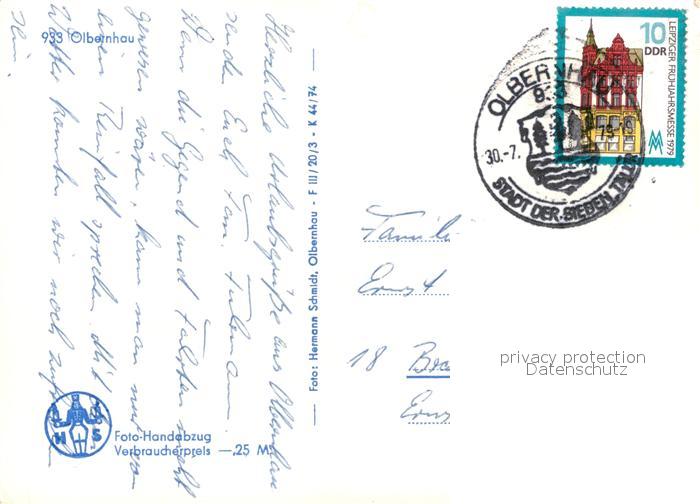 933 Olbernhau
Herzliche Urlaubsgrüße aus Olbernhau
senden Euch Fam.
Wenn die Gegend und nicht
gewesen wären, kann man nur von
einem Reinfall sprechen. Mit
Wetter konnten wir noch zufr
sein.
Foto: Hermann Schmidt, Olbernhau - F III/20/3 - X 44/74
HS
Foto-Handabzug
Verbraucherpreis —,25 M
10
DDR
LEIPZIGER FRÜHJAHRSMESSE 1979
OLBERNHAU
933
30.-7.
STADT DER SIEBEN TÄLER
Famili
Ernst
18 Bra
Erns
privacy protection
Datenschutz